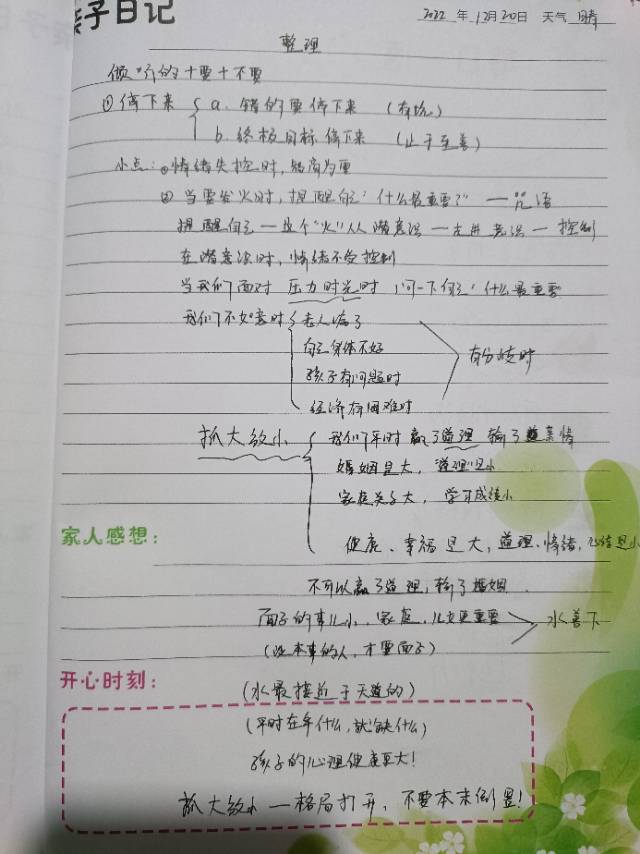 亲子日记
2022年12月20日 天气 晴
整理
做 的十要十不要
①停下来 a. 错的要停下来 (有坑)
b. 终极目标停下来 (止于至善)
小点:①情绪失控时,离为更
②当要发火时,提醒自己"什么最重要?" — 咒语
提醒自己 — 这个"火"从潜意识 — 走进意识 — 控制
在潜意识时,情绪不受控制
当我们面对 压力时 时 问一下自己"什么最重要
我们不如意时 老人病了
自己身体不好
孩子有问题时
经济有困难时
有分歧时
抓大放小 我们平时赢了道理 输了亲情
婚姻是大,道理是小
家庭关系大,学习成绩小
家人感想:
健康、幸福是大,道理、情绪、 是小
不可以赢了道理,输了婚姻.
面子的事儿小,家庭、儿女更重要 水善下
(没本事的人,才要面子)
开心时刻:
(水最接近于天道的)
(平时在乎什么,就缺什么)
孩子的心理健康更大!
抓大放小 — 格局打开,不要本末倒置!